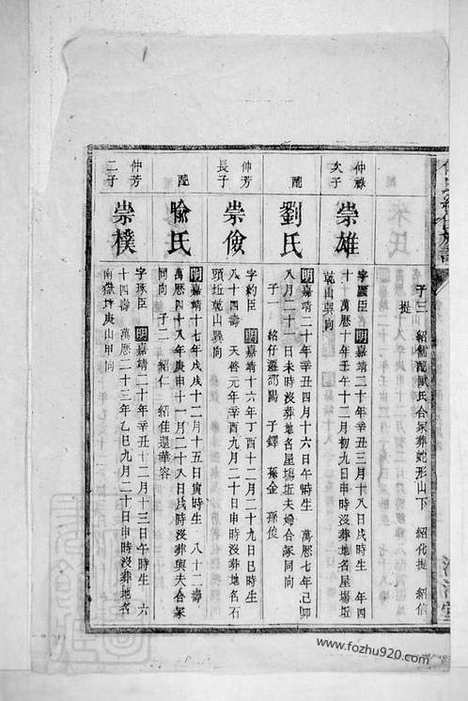 子三 紹
合冢葬蛇形山下 紹代提 紹信
提
仲祿
次子
崇雄
字震臣 明嘉靖二十年辛丑三月十八日戌時生 年四
十 萬曆十年壬午十二月初九日申時沒葬地名屋場坵
乾山巽向
配
劉氏
明嘉靖二十年辛丑四月十六日午時生 萬曆七年己卯
八月二十一日未時沒葬地名屋場坵夫婦合冢同向
子一 紹仔遷沔陽 子鐸 孫金 孫俊
仲芳
長子
崇儉
字約臣 明嘉靖十六年丁酉十二月二十九日巳時生
八十四壽 天啟元年辛酉九月二十日申時沒葬地名石
頭坵乾山巽向
配
喻氏
明嘉靖十七年戊戌十二月十五日寅時生 八十二壽
萬曆四十八年庚申十一月二十八日戌時沒葬與夫合冢
同向 子二 紹仁 紹佳遷華容
仲芳
二子
崇樸
字琢臣 明嘉靖二十年辛丑十二月十三日午時生 六
十四壽 萬曆二十三年乙巳九月二十日申時沒葬地名
南嶽坵庚山甲向
www.fozhu920.com